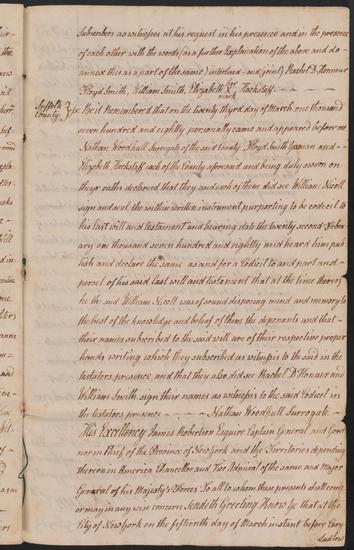 Subscribers as witnesses at his request in his presence and in the presence
of each other with the words (as a further Explanation of the above and do
annex this as a part of the same) interlined – and (joint) Rachel D. Honneur
Floyd Smith, William Smith, Elizabeth X Hackstaff
mark
Suffolk County } ss: Be it Remembered that on the twenty third day of March one thousand
seven hundred and eighty personally came and appeared before me
Nathan Woodhull Surrogate of the said County Floyd Smith Yeoman and
Elizabeth Hackstaff each of the County aforesaid and being duly sworn on
their oaths declared that they and each of them did see William Nicoll
sign and seal the within written instrument purporting to be codicil to
his last will and testament and bearing date the twenty second Febru
ary one thousand seven hundred and eighty and heard him pub
lish and declare the same as and for a Codicil to and part and
parsel of his said last will and testament that at the time thereof
he the said William Nicoll was of sound disposing mind and memory to
the best of the knowledge and belief of them the deponants and that
their names subscribed to the said will are of their respective proper
hands writing which they subscribed as witness to the said in the
testators presence and that they also did see Rachel D. Honneur and
William Smith sign their names as witness to the said Codicel in
the testators presence Nathan Woodhull Surrogate
His Excellency James Robertson Esquire Captain General and Gover
nor in Chief of the Province of New York and the Territories depending
thereon in America Chancellor and Vice Admiral of the same and Major
General of his Majesty's Forces To all to whom these presents shall come
or may in any wise concern Sendeth Greeting Know ye that at the
City of New York on the fifteenth day of March instant before Cary
Ludlow